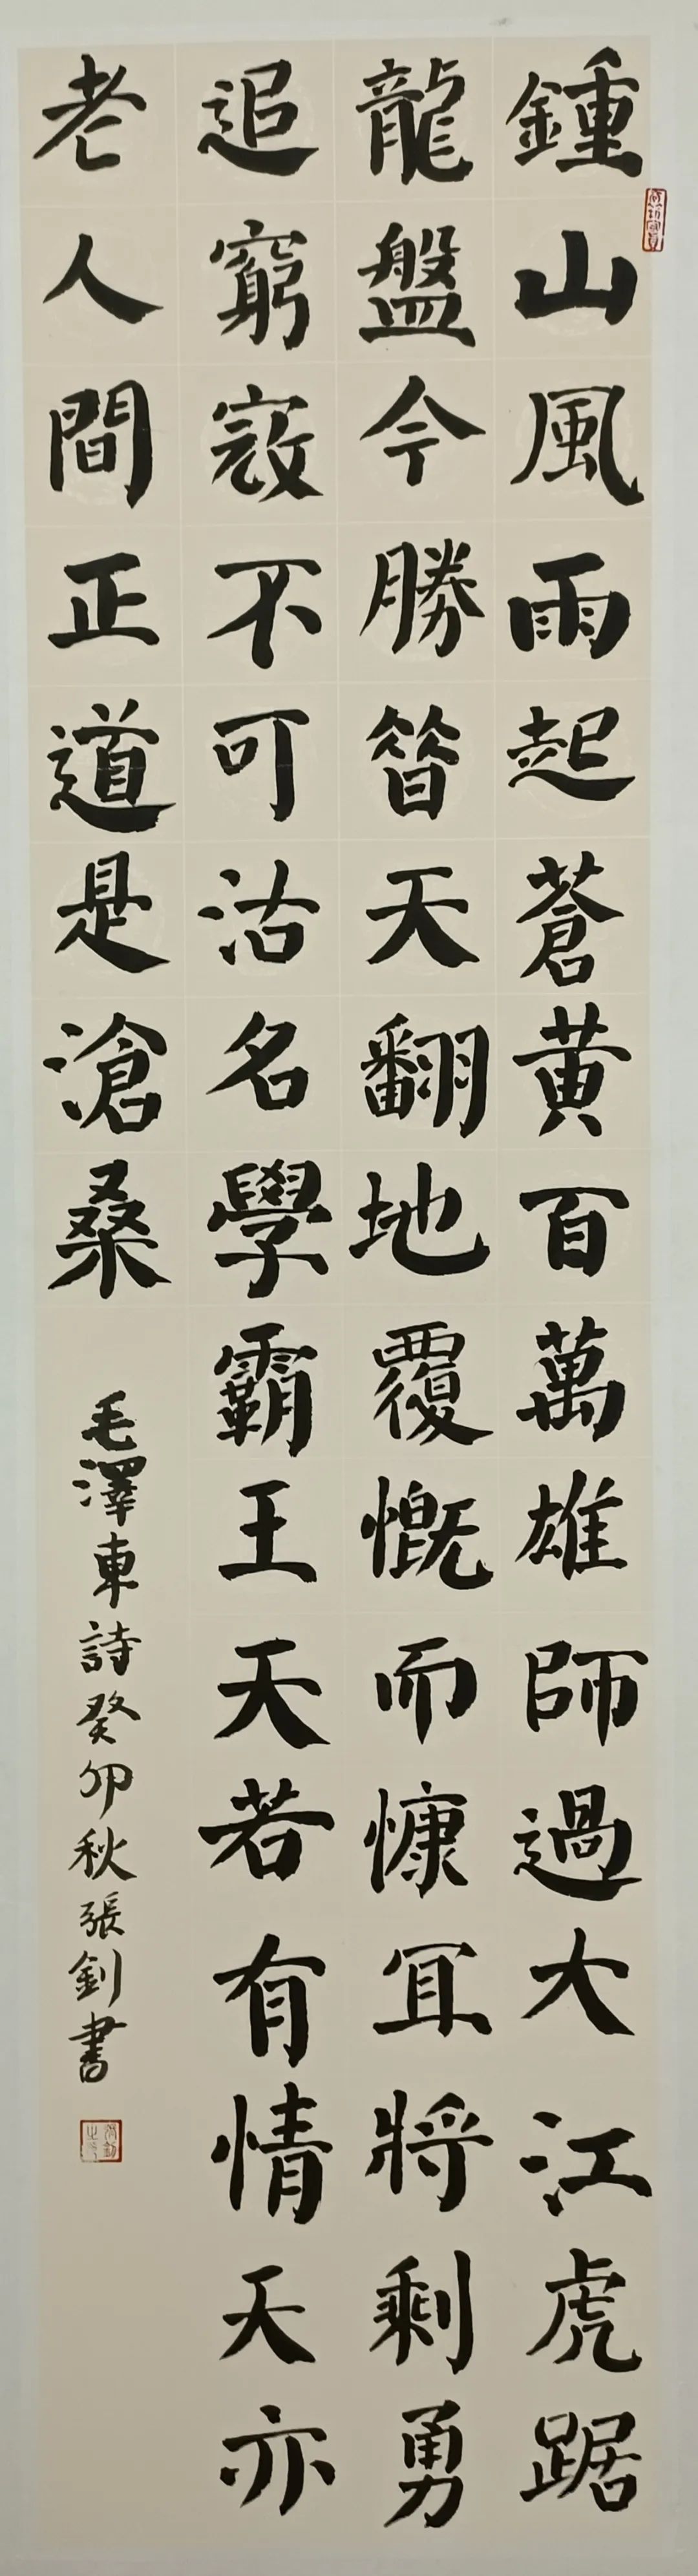 鍾山風雨起蒼黄百萬雄師過大江虎踞
龍盤今勝昝天翻地覆慨而慷冝將剩勇
追窮寇不可沽名學霸王天若有情天亦
老人間正道是滄桑
毛澤東詩癸卯秋張釗書